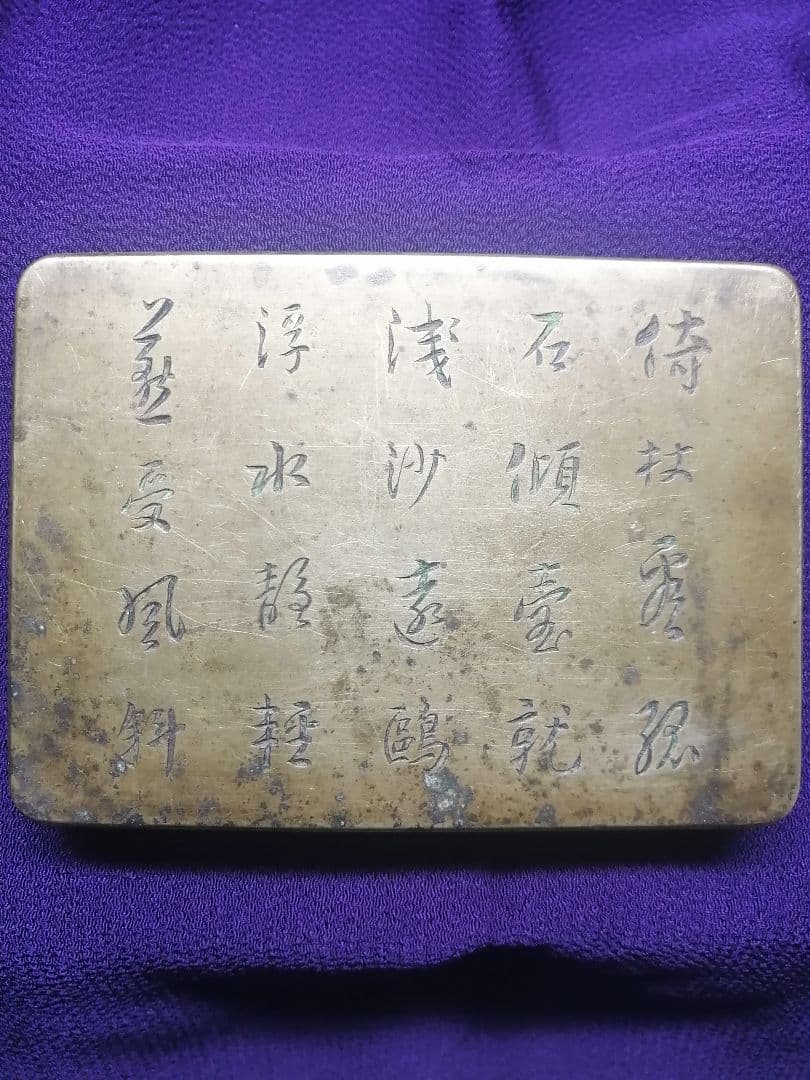 倚杖看孤
石傾壺就
淺沙遠鷗
浮水靜輕
燕受風斜